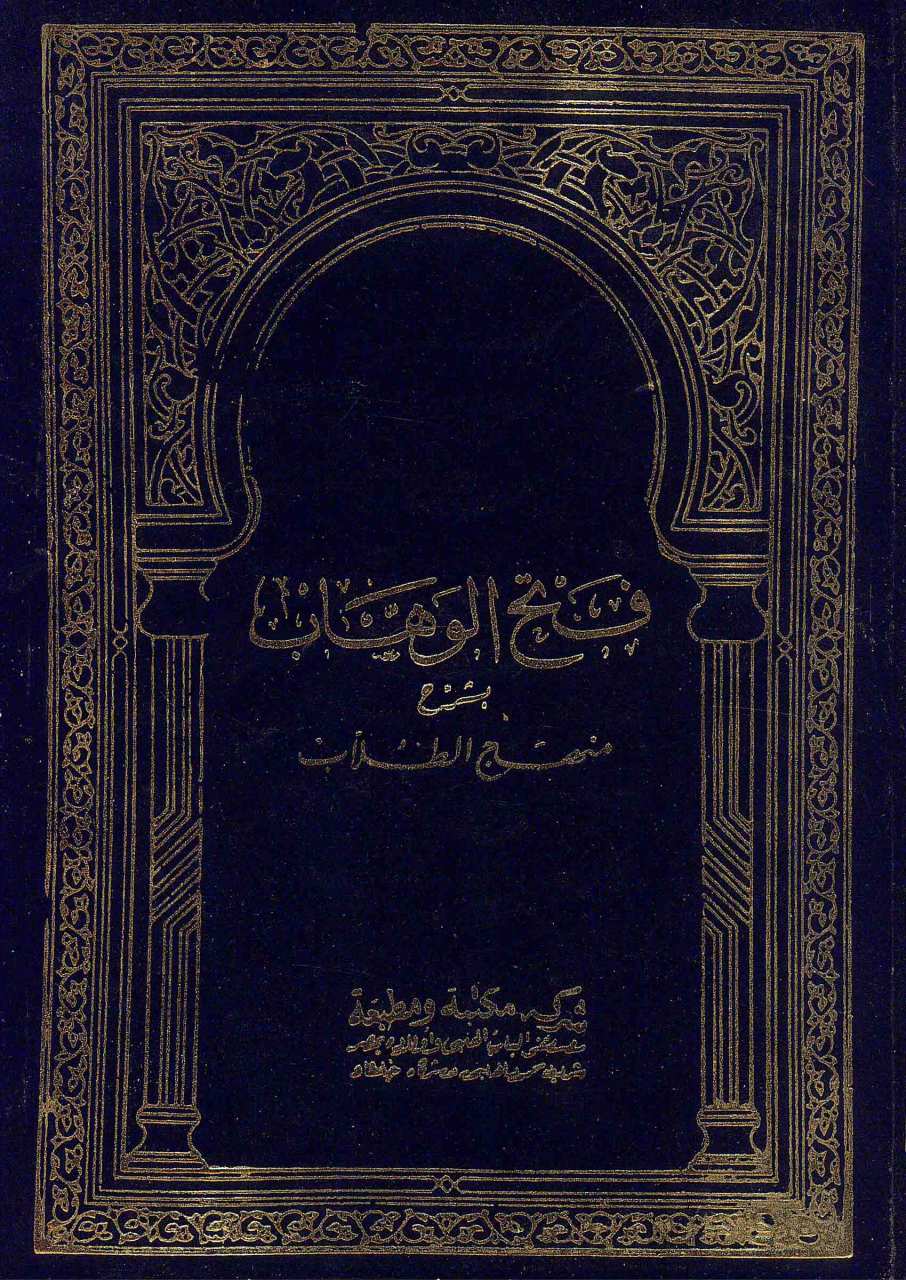 فَتْحُ الْوَهَّابْ
بشَرْح
منهَج الطُلّابْ
شركة مكتبة ومطبعة
مصطفى البابى الحلبى وأولاده بمصر